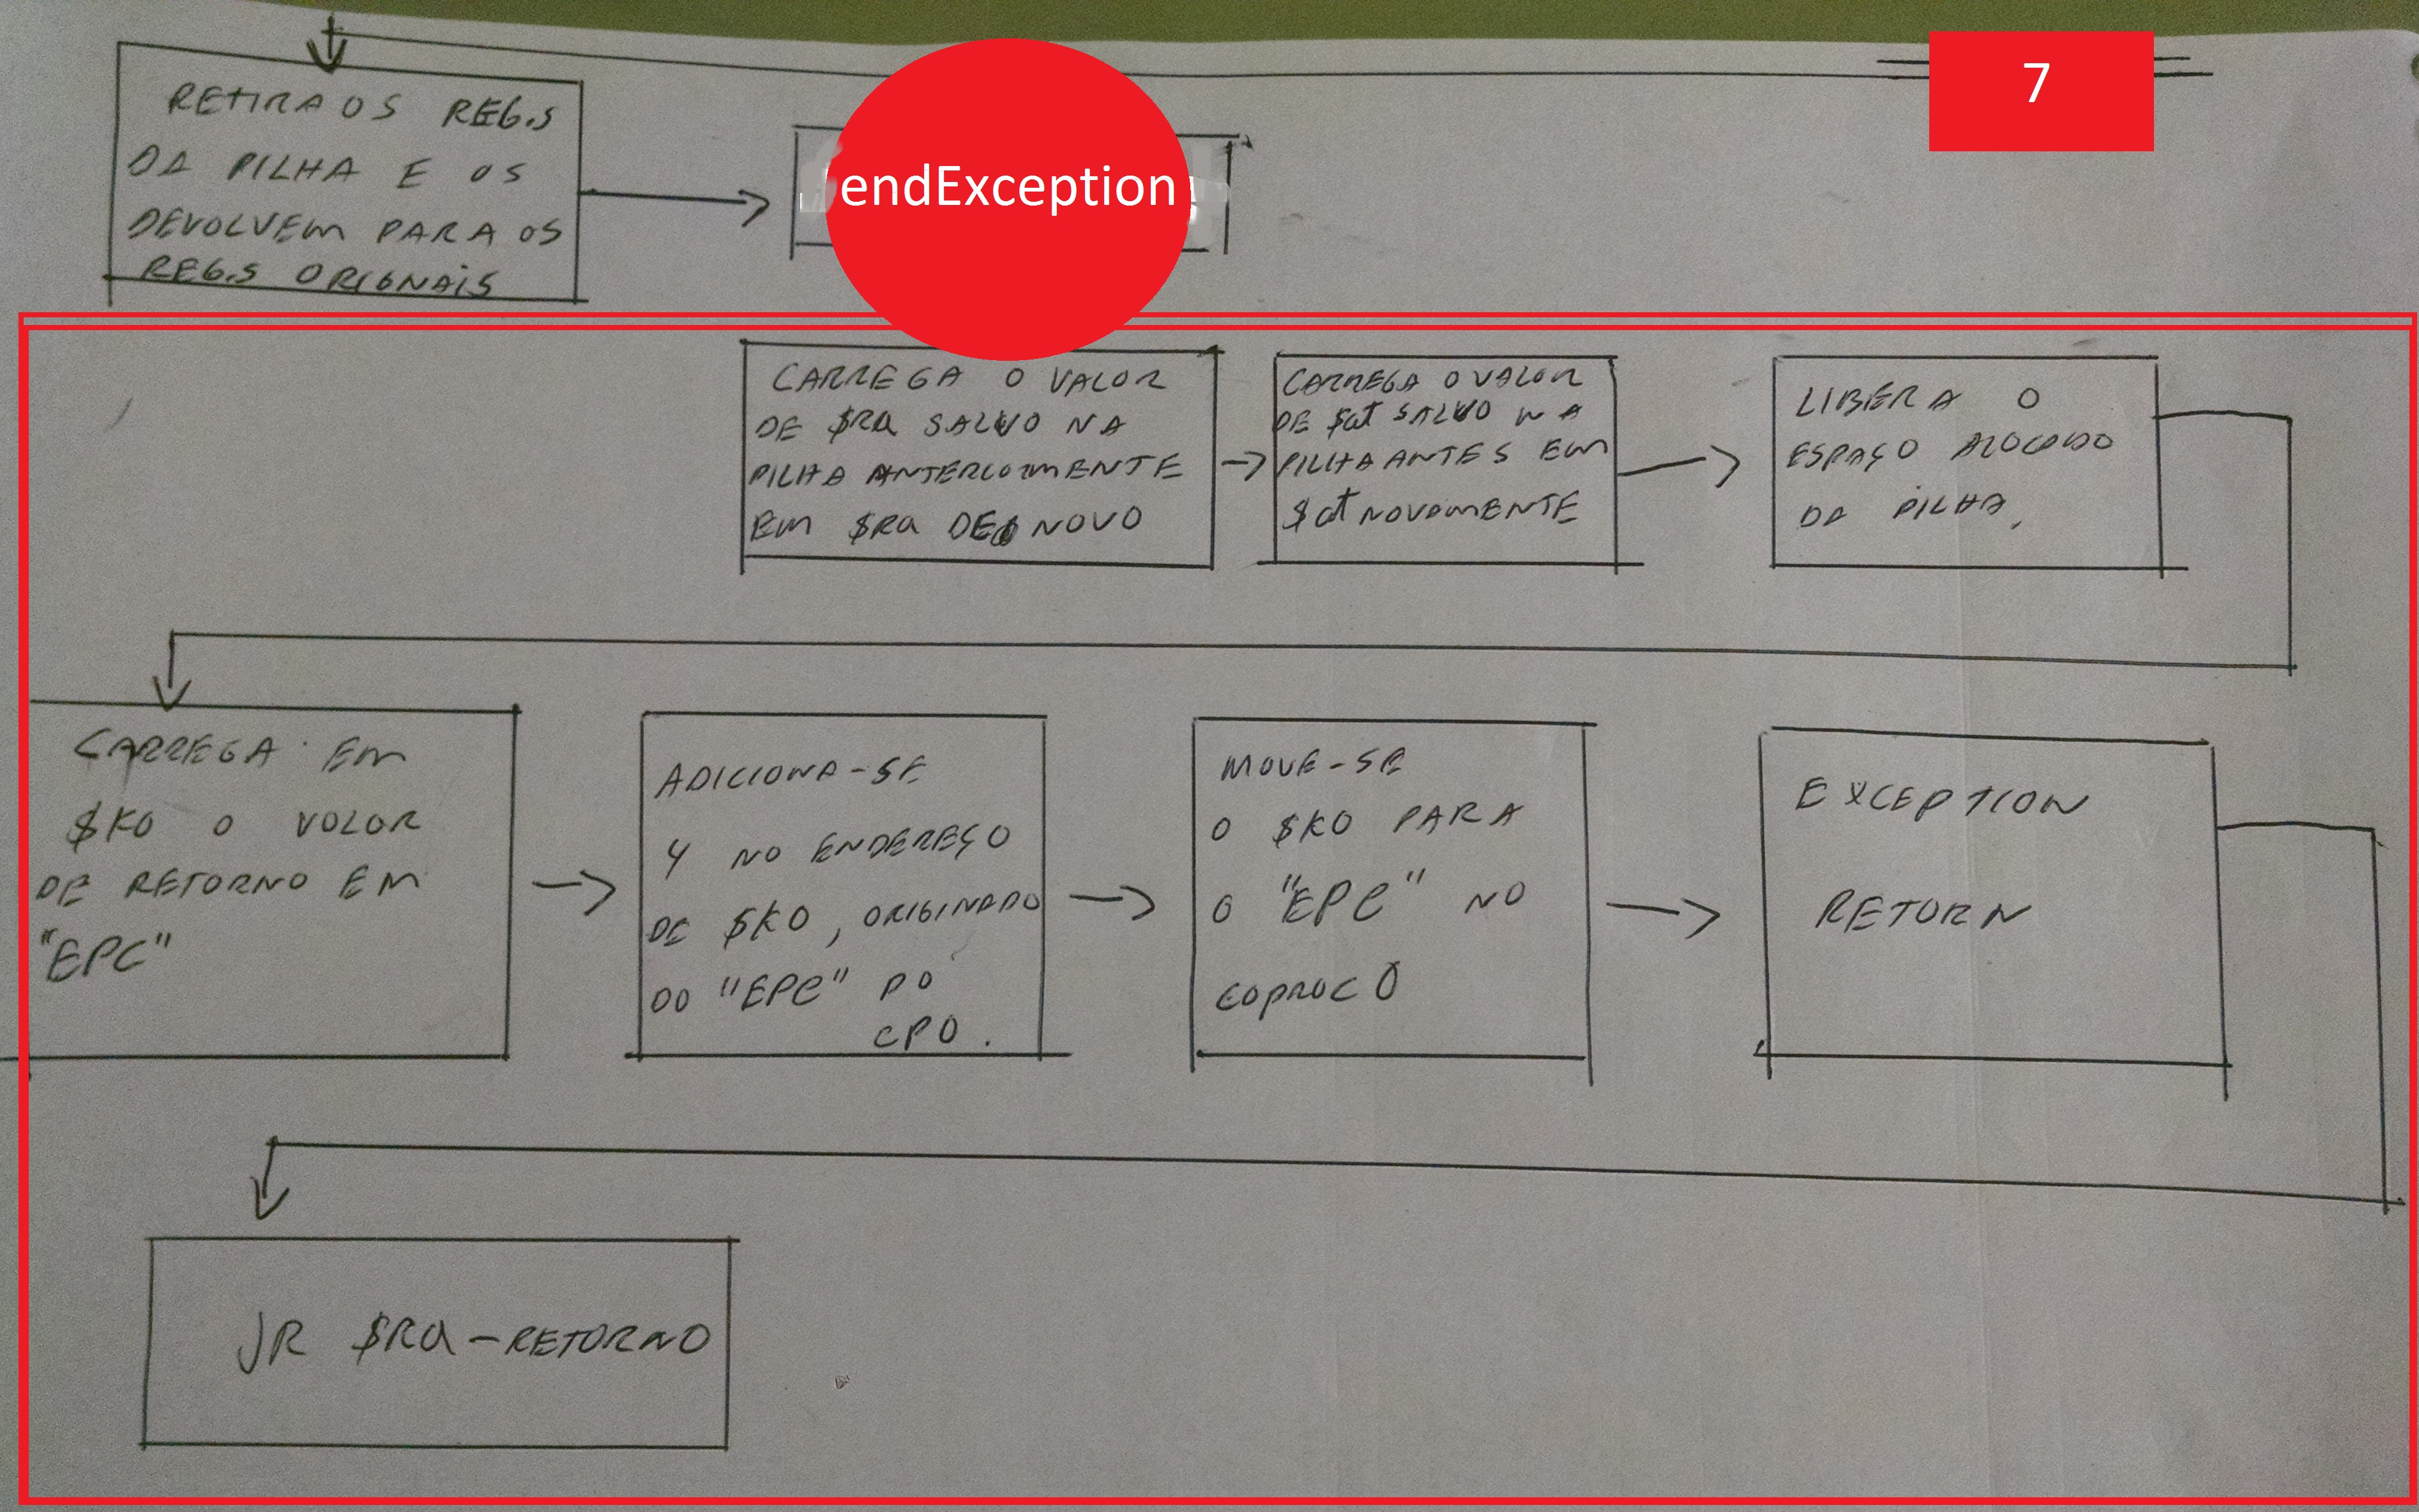 7
RETIRA OS REG.S
DA PILHA E OS
DEVOLVEM PARA OS
REG.S ORIGNAIS
endException
CARREGA O VALOR
DE $RA SALVO NA
PILHA ANTERIORMENTE
EM $RA DE NOVO
CARREGA O VALOR
DE $at SALVO NA
PILHA ANTES EM
$at NOVAMENTE
LIBERA O
ESPAÇO ALOCADO
DA PILHA.
CARREGA EM
$K0 O VALOR
DE RETORNO EM
"EPC"
ADICIONA-SE
4 NO ENDEREÇO
DE $K0, ORIGINADO
DO "EPC" DO
CP0.
MOVE-SE
O $K0 PARA
O "EPC" NO
COPROC 0
EXCEPTION
RETORN
JR $RA - RETORNO